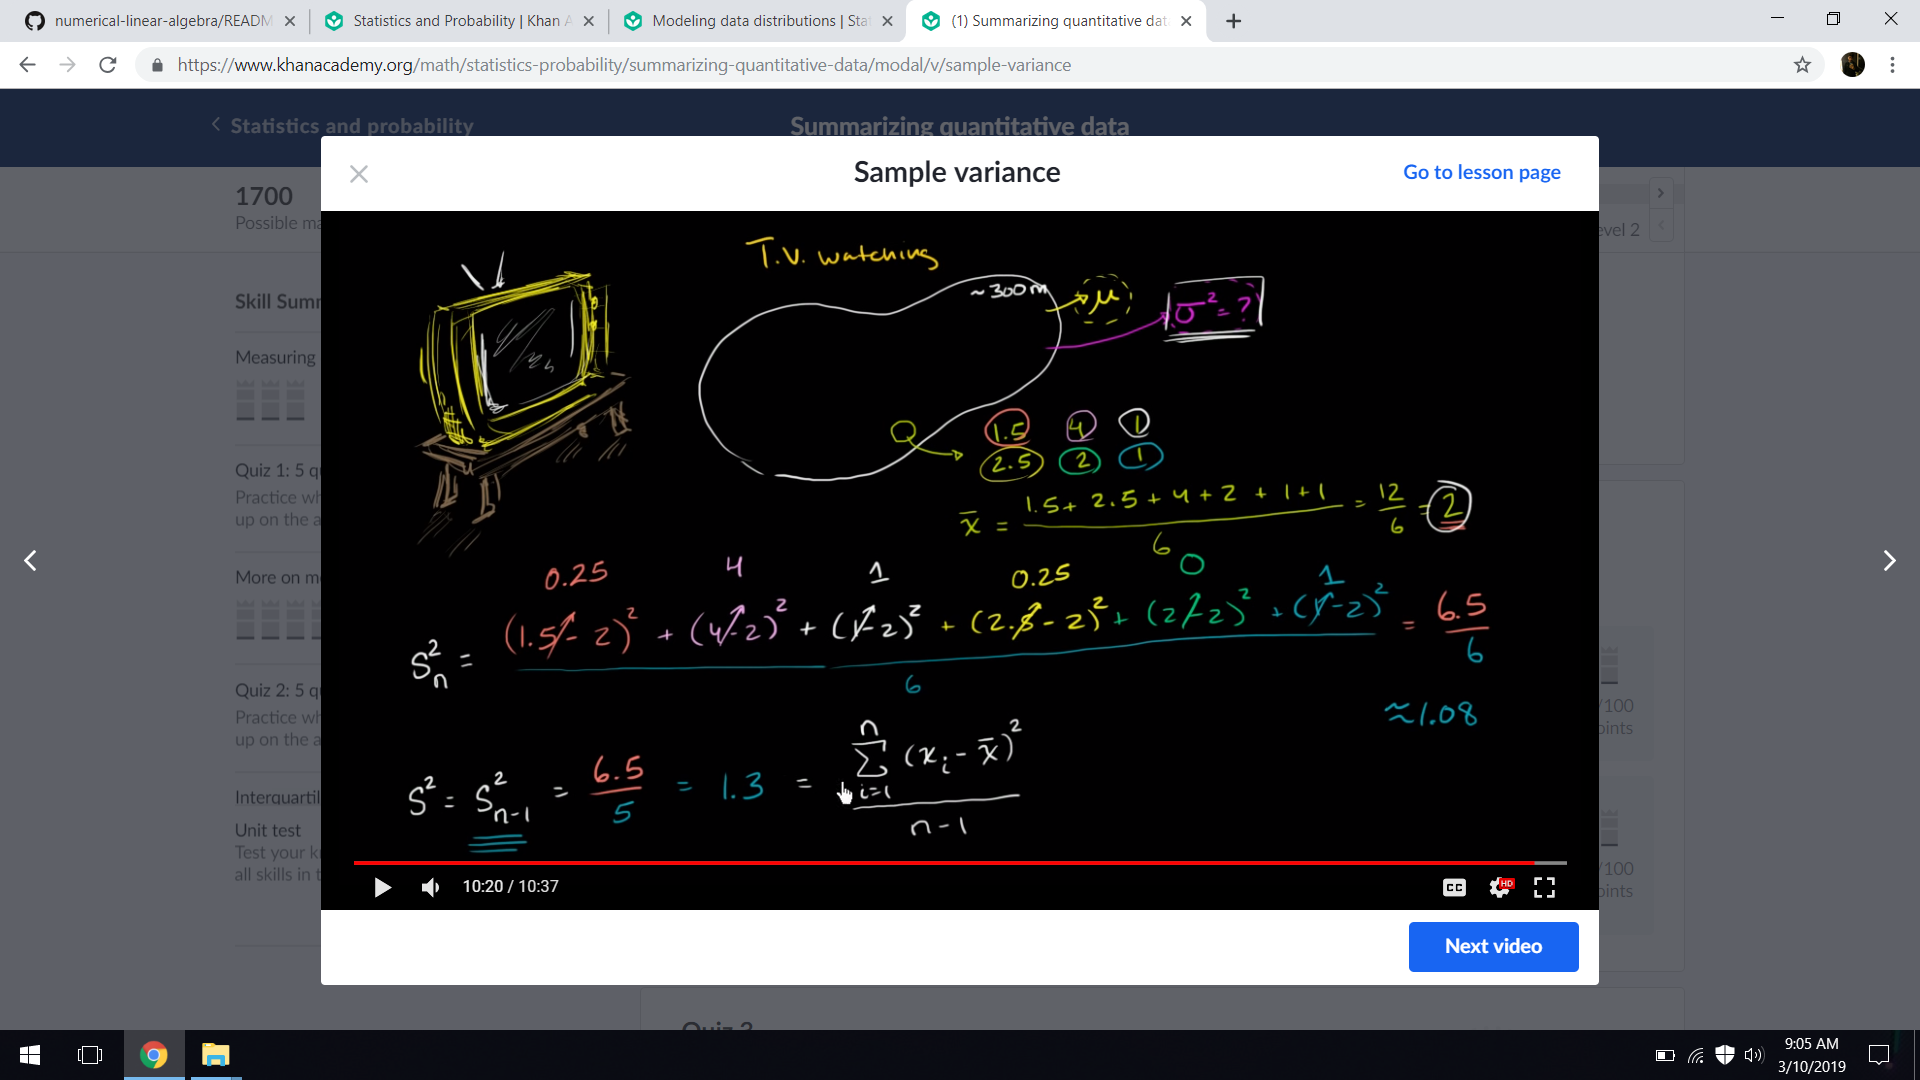 numerical-linear-algebra/READM
Statistics and Probability | Khan A
Modeling data distributions | Stat
(1) Summarizing quantitative dat
https://www.khanacademy.org/math/statistics-probability/summarizing-quantitative-data/modal/v/sample-variance
Statistics and probability
Summarizing quantitative data
Sample variance
Go to lesson page
1700
Possible ma
evel 2
Skill Summ
Measuring
Quiz 1: 5 qu
Practice wh
up on the a
More on m
Quiz 2: 5 qu
Practice wh
up on the a
Interquartil
Unit test
Test your k
all skills in t
/100
oints
/100
oints
T.V. watching
~300m → μ
σ² = ?
1.5 4 1
2.5 2 1
x̄ = (1.5 + 2.5 + 4 + 2 + 1 + 1) / 6 = 12/6 = 2
0.25 4 1 0.25 0 1
Sₙ² = ((1.5 - 2)² + (4 - 2)² + (1 - 2)² + (2.5 - 2)² + (2 - 2)² + (1 - 2)²) / 6 = 6.5/6
≈ 1.08
S² = Sₙ₋₁² = 6.5/5 = 1.3 = Σ (xᵢ - x̄)² / (n - 1)
n
i=1
10:20 / 10:37
CC
HD
Next video
Quiz 3
9:05 AM
3/10/2019